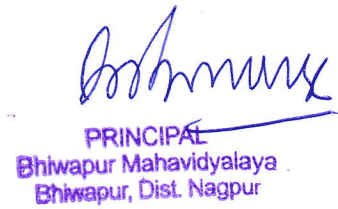 PRINCIPAL
Bhiwapur Mahavidyalaya
Bhiwapur, Dist. Nagpur